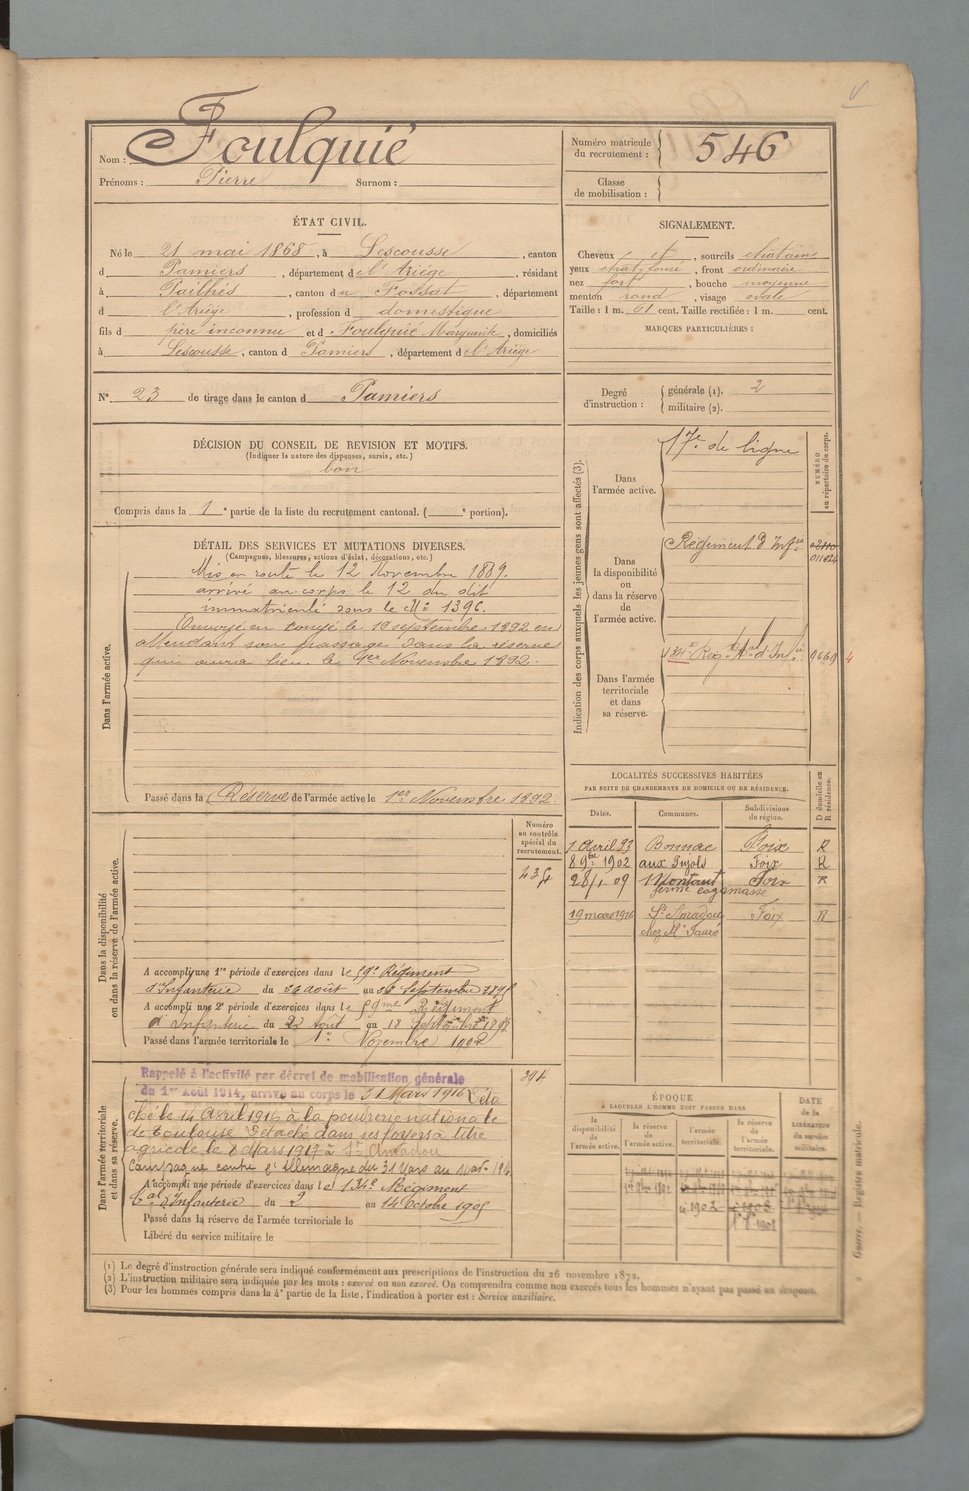 Nom : Foulquié
Prénoms : Pierre Surnom :
Numéro matricule du recrutement : 546
Classe de mobilisation :
ÉTAT CIVIL.
Né le 21 mai 1868, à Lescousse, canton
d Pamiers, département de l'Ariège, résidant
à Pailhés, canton du Fossat, département
d l'Ariège, profession d domestique
fils d père inconnu et d Foulquié Marguerite, domiciliés
à Lescousse, canton d Pamiers, département de l'Ariège
N° 23 de tirage dans le canton d Pamiers
SIGNALEMENT.
Cheveux et, sourcils chatains
yeux chat. foncé, front ordinaire
nez fort, bouche moyenne
menton rond, visage ovale
Taille : 1 m. 61 cent. Taille rectifiée : 1 m. cent.
MARQUES PARTICULIÈRES :
Degré d'instruction : générale (1). 2
militaire (2).
DÉCISION DU CONSEIL DE REVISION ET MOTIFS.
(Indiquer la nature des dispenses, sursis, etc.)
bon
Compris dans la 1e partie de la liste du recrutement cantonal. ( e portion).
DÉTAIL DES SERVICES ET MUTATIONS DIVERSES.
(Campagnes, blessures, actions d'éclat, décorations, etc.)
Dans l'armée active.
Mis en route le 12 Novembre 1889.
arrivé au corps le 12 du dit
immatriculé sous le N° 1396.
Envoyé en congé le 19 septembre 1892 en
attendant son passage dans la réserve
qui aura lieu le 1er Novembre 1892.
Passé dans la Réserve de l'armée active le 1er Novembre 1892
Indication des corps auxquels les jeunes gens sont affectés (3).
NUMÉRO au répertoire du corps.
Dans l'armée active.
17e de ligne
Dans la disponibilité ou dans la réserve de l'armée active.
Régiment d'Infrie
Dans l'armée territoriale et dans sa réserve.
9669 4
LOCALITÉS SUCCESSIVES HABITÉES
PAR SUITE DE CHANGEMENTS DE DOMICILE OU DE RÉSIDENCE.
Dates. Communes. Subdivisions de région. D domicile ou R résidence.
1 Avril 93 Bonnac Foix R
8 9bre 1902 aux Pujols Foix R
28/1.09 Montaut Foix R
ferme cagamasse
19 mars 1916 St Amadou Foix R
chez Mr Fauré
Dans la disponibilité ou dans la réserve de l'armée active.
Numéro au contrôle spécial du recrutement.
A accompli une 1re période d'exercices dans le 59e Régiment
d'Infanterie du 26 août au Septembre 1895
A accompli une 2e période d'exercices dans le 59me Régiment
d'Infanterie du 22 Août au 18 Septembre 1898
Passé dans l'armée territoriale le 1er Novembre 1902
Dans l'armée territoriale et dans sa réserve.
394
Rappelé à l'activité par décret de mobilisation générale
du 1er Août 1914, arrivé au corps le 31 Mars 1916 Déta
ché le 14 Avril 1916 à la poudrerie nationale
de Toulouse. Détaché dans ses foyers à titre
agricole le 8 Mars 1917 à St Amadou
Campagne contre l'Allemagne du 31 Mars au
A accompli une période d'exercices dans le 134e Régiment
tal d'Infanterie du 2 au 14 Octobre 1905
Passé dans la réserve de l'armée territoriale le
Libéré du service militaire le
ÉPOQUE
À LAQUELLE L'HOMME DOIT PASSER DANS
la disponibilité de l'armée active. la réserve de l'armée active. l'armée territoriale. la réserve de l'armée territoriale.
DATE de la LIBÉRATION du service militaire.
(1) Le degré d'instruction générale sera indiqué conformément aux prescriptions de l'instruction du 26 novembre 1872.
(2) L'instruction militaire sera indiquée par les mots : exercé ou non exercé. On comprendra comme non exercés tous les hommes n'ayant pas passé au drapeau.
(3) Pour les hommes compris dans la 4e partie de la liste, l'indication à porter est : Service auxiliaire.
Guerre. — Registre matricule.